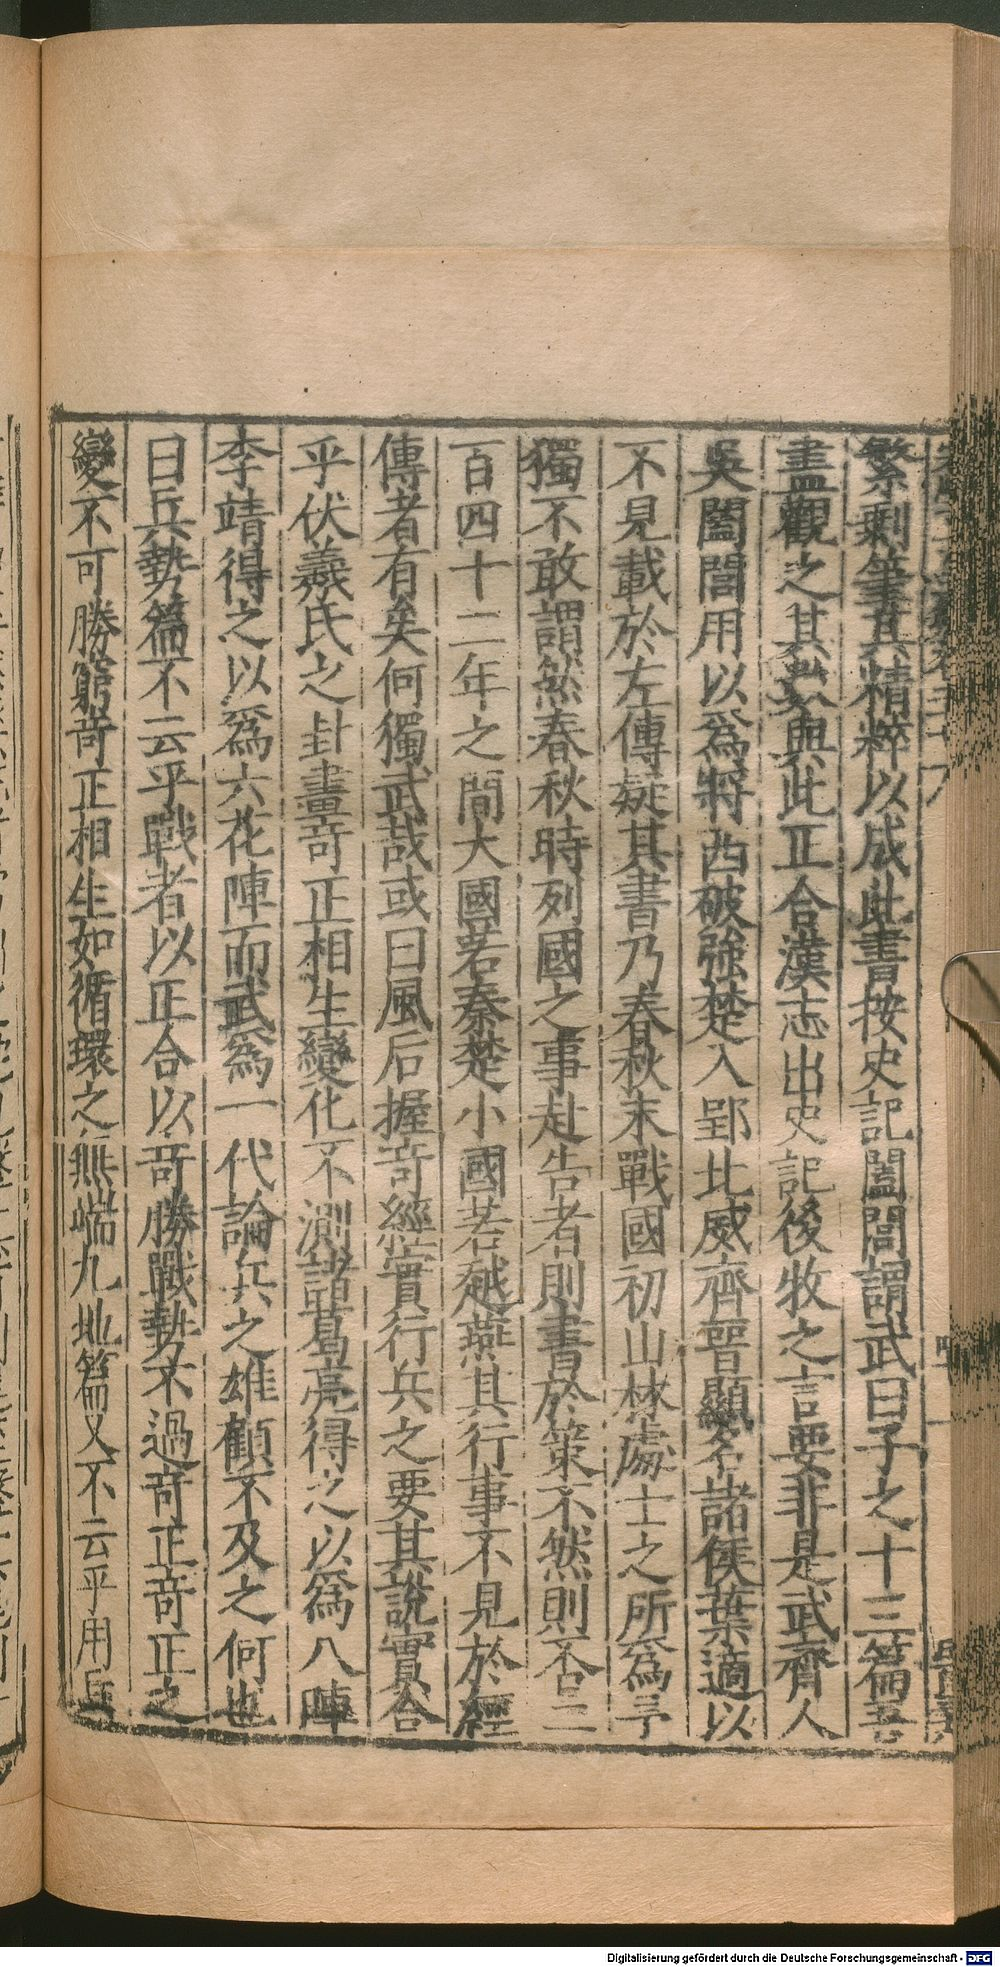 繁剩筆其精粹以成此書按史記闔閭謂武曰子之十三篇吾
盡觀之其數與此正合漢志出史記後牧之言要非是武齊人
吳闔閭用以爲將西破強楚入郢北威齊晉顯名諸侯葉適以
不見載於左傳疑其書乃春秋末戰國初山林處士之所爲予
獨不敢謂然春秋時列國之事赴告者則書於策不然則否二
百四十二年之間大國若秦楚小國若越燕其行事不見於經
傳者有矣何獨武哉或曰風后握奇經實行兵之要其說實合
乎伏羲氏之卦畫奇正相生變化不測諸葛亮得之以爲八陣
李靖得之以爲六花陣而武爲一代論兵之雄顧不及之何也
曰兵勢篇不云乎戰者以正合以奇勝戰勢不過奇正奇正之
變不可勝窮奇正相生如循環之無端九地篇又不云乎用兵
Digitalisierung gefördert durch die Deutsche Forschungsgemeinschaft - DFG